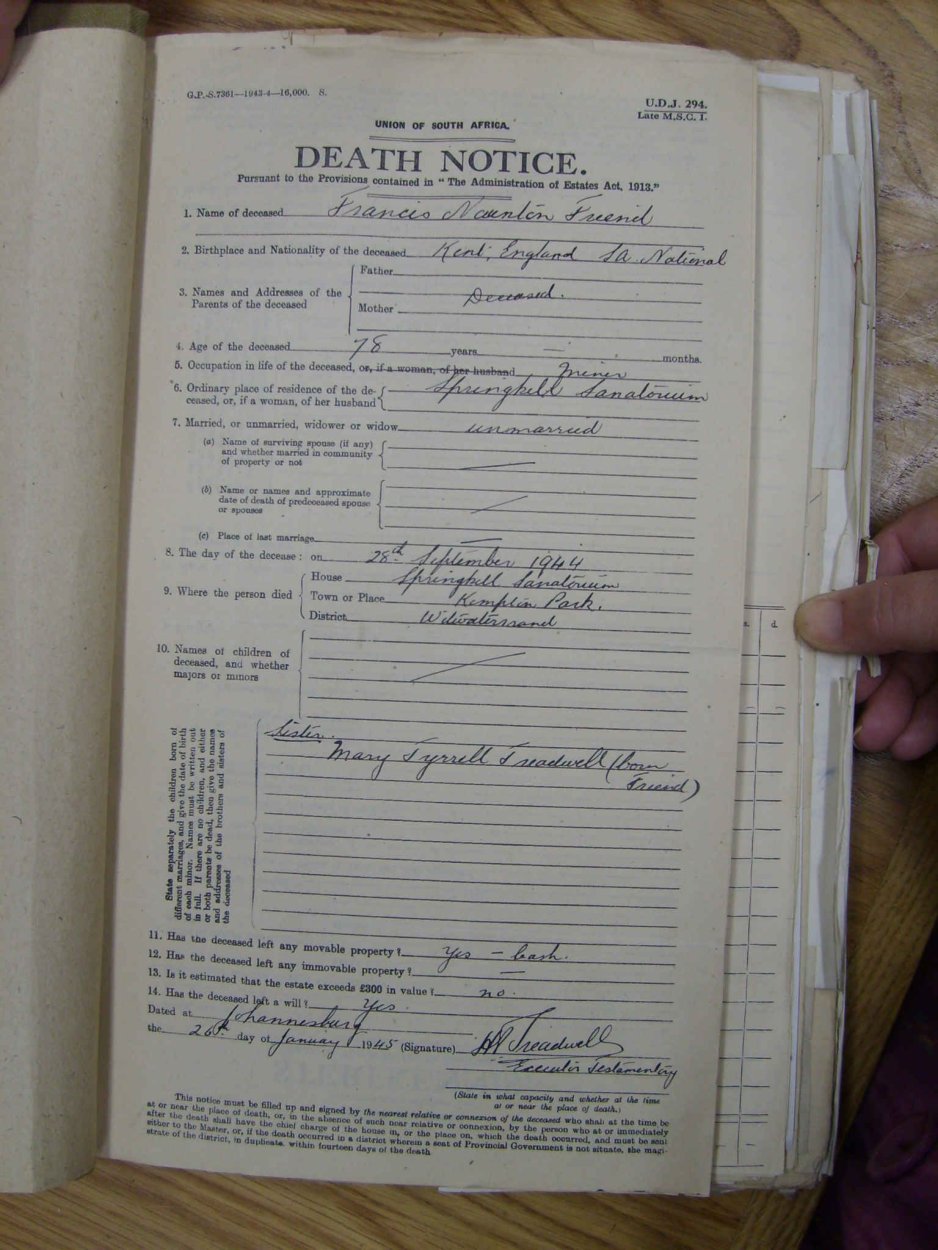 G.P.-S.7361—1943-4—16,000. S.
U.D.J. 294.
Late M.S.C. 1.
UNION OF SOUTH AFRICA.
DEATH NOTICE.
Pursuant to the Provisions contained in "The Administration of Estates Act, 1913."
1. Name of deceased Francis Naunton Friend
2. Birthplace and Nationality of the deceased Kent, England SA National
3. Names and Addresses of the Parents of the deceased
Father
Deceased.
Mother
4. Age of the deceased 78 years — months.
5. Occupation in life of the deceased, or, if a woman, of her husband Miner
6. Ordinary place of residence of the de-
ceased, or, if a woman, of her husband
Springkell Sanatorium
7. Married, or unmarried, widower or widow unmarried
(a) Name of surviving spouse (if any)
and whether married in community
of property or not
(b) Name or names and approximate
date of death of predeceased spouse
or spouses
(c) Place of last marriage —
8. The day of the decease: on 28th September 1944
9. Where the person died
House Springkell Sanatorium
Town or Place Kempton Park.
District Witwatersrand
10. Names of children of
deceased, and whether
majors or minors
State separately the children born of
different marriages, and give the date of birth
of each minor. Names must be written out
in full. If there are no children, and either
or both parents be dead, then give the names
and addresses of the brothers and sisters of
the deceased
Sister.
Mary Tyrrell Treadwell (born
Friend)
11. Has the deceased left any movable property? Yes — Cash.
12. Has the deceased left any immovable property? —
13. Is it estimated that the estate exceeds £300 in value? no.
14. Has the deceased left a will? Yes.
Dated at Johannesburg
the 26th day of January 1945 (Signature) Treadwell
Executor Testamentary
(State in what capacity and whether at the time
at or near the place of death.)
This notice must be filled up and signed by the nearest relative or connexion of the deceased who shall at the time be
at or near the place of death, or, in the absence of such near relative or connexion, by the person who at or immediately
after the death shall have the chief charge of the house in, or the place on, which the death occurred, and must be sent
either to the Master, or, if the death occurred in a district wherein a seat of Provincial Government is not situate, the magi-
strate of the district, in duplicate, within fourteen days of the death
s. d.